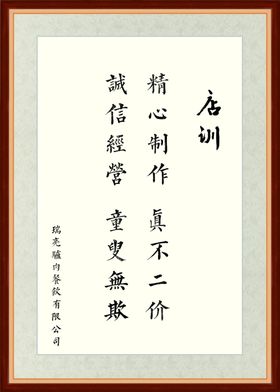 店训
精心制作 真不二价
誠信經營 童叟無欺
瑞亮驢肉餐飲有限公司